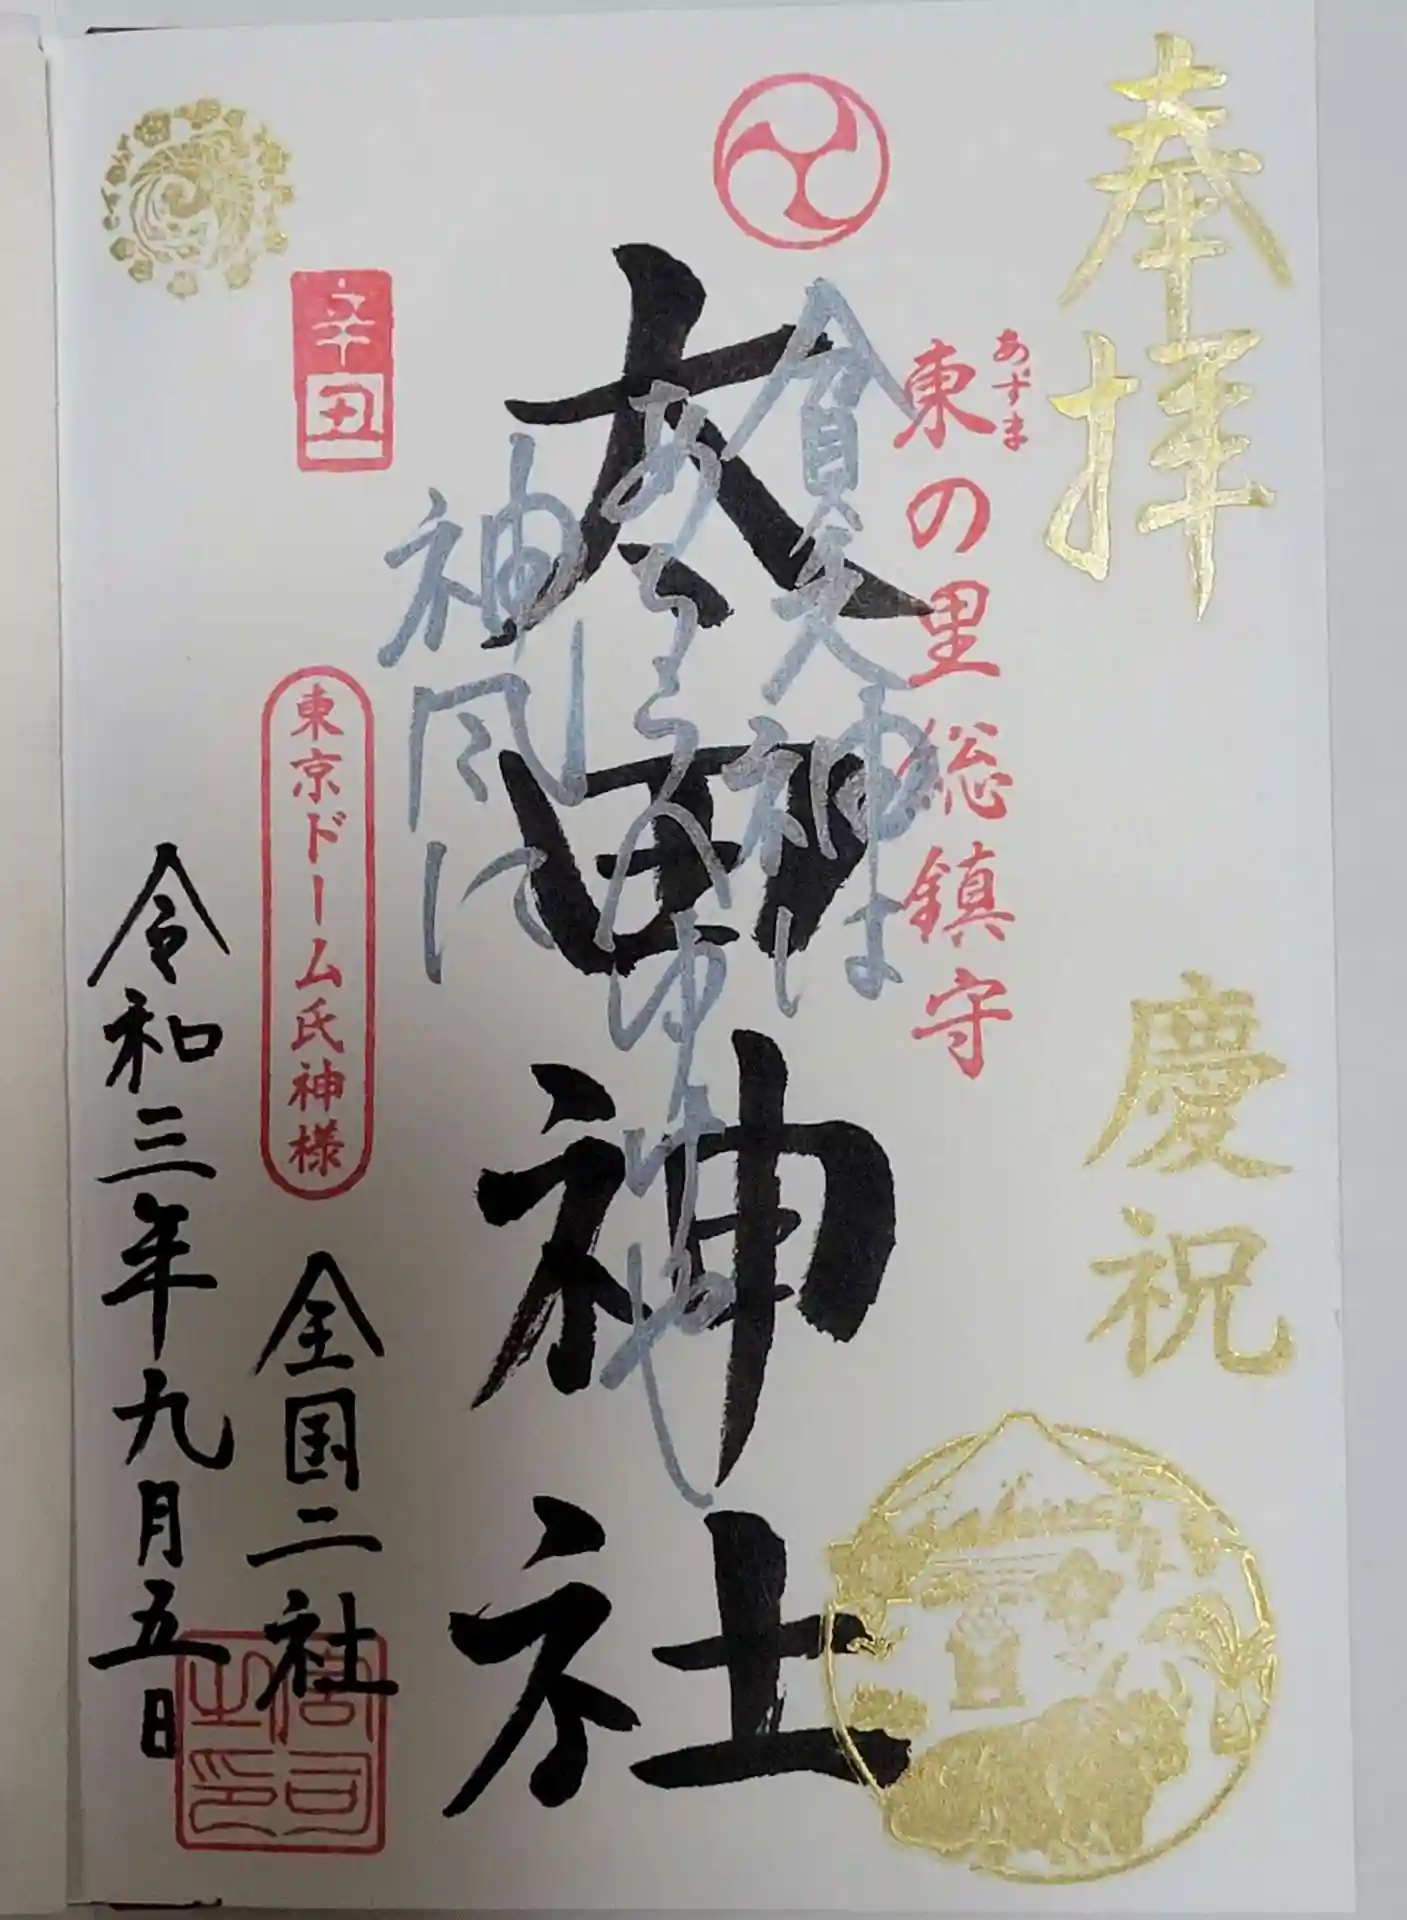 奉拝
慶祝
あずま
東の里総鎮守
太田神社
貧乏神は
神風に
辛丑
東京ドーム氏神様
全国二社
宮司之印
令和三年九月五日